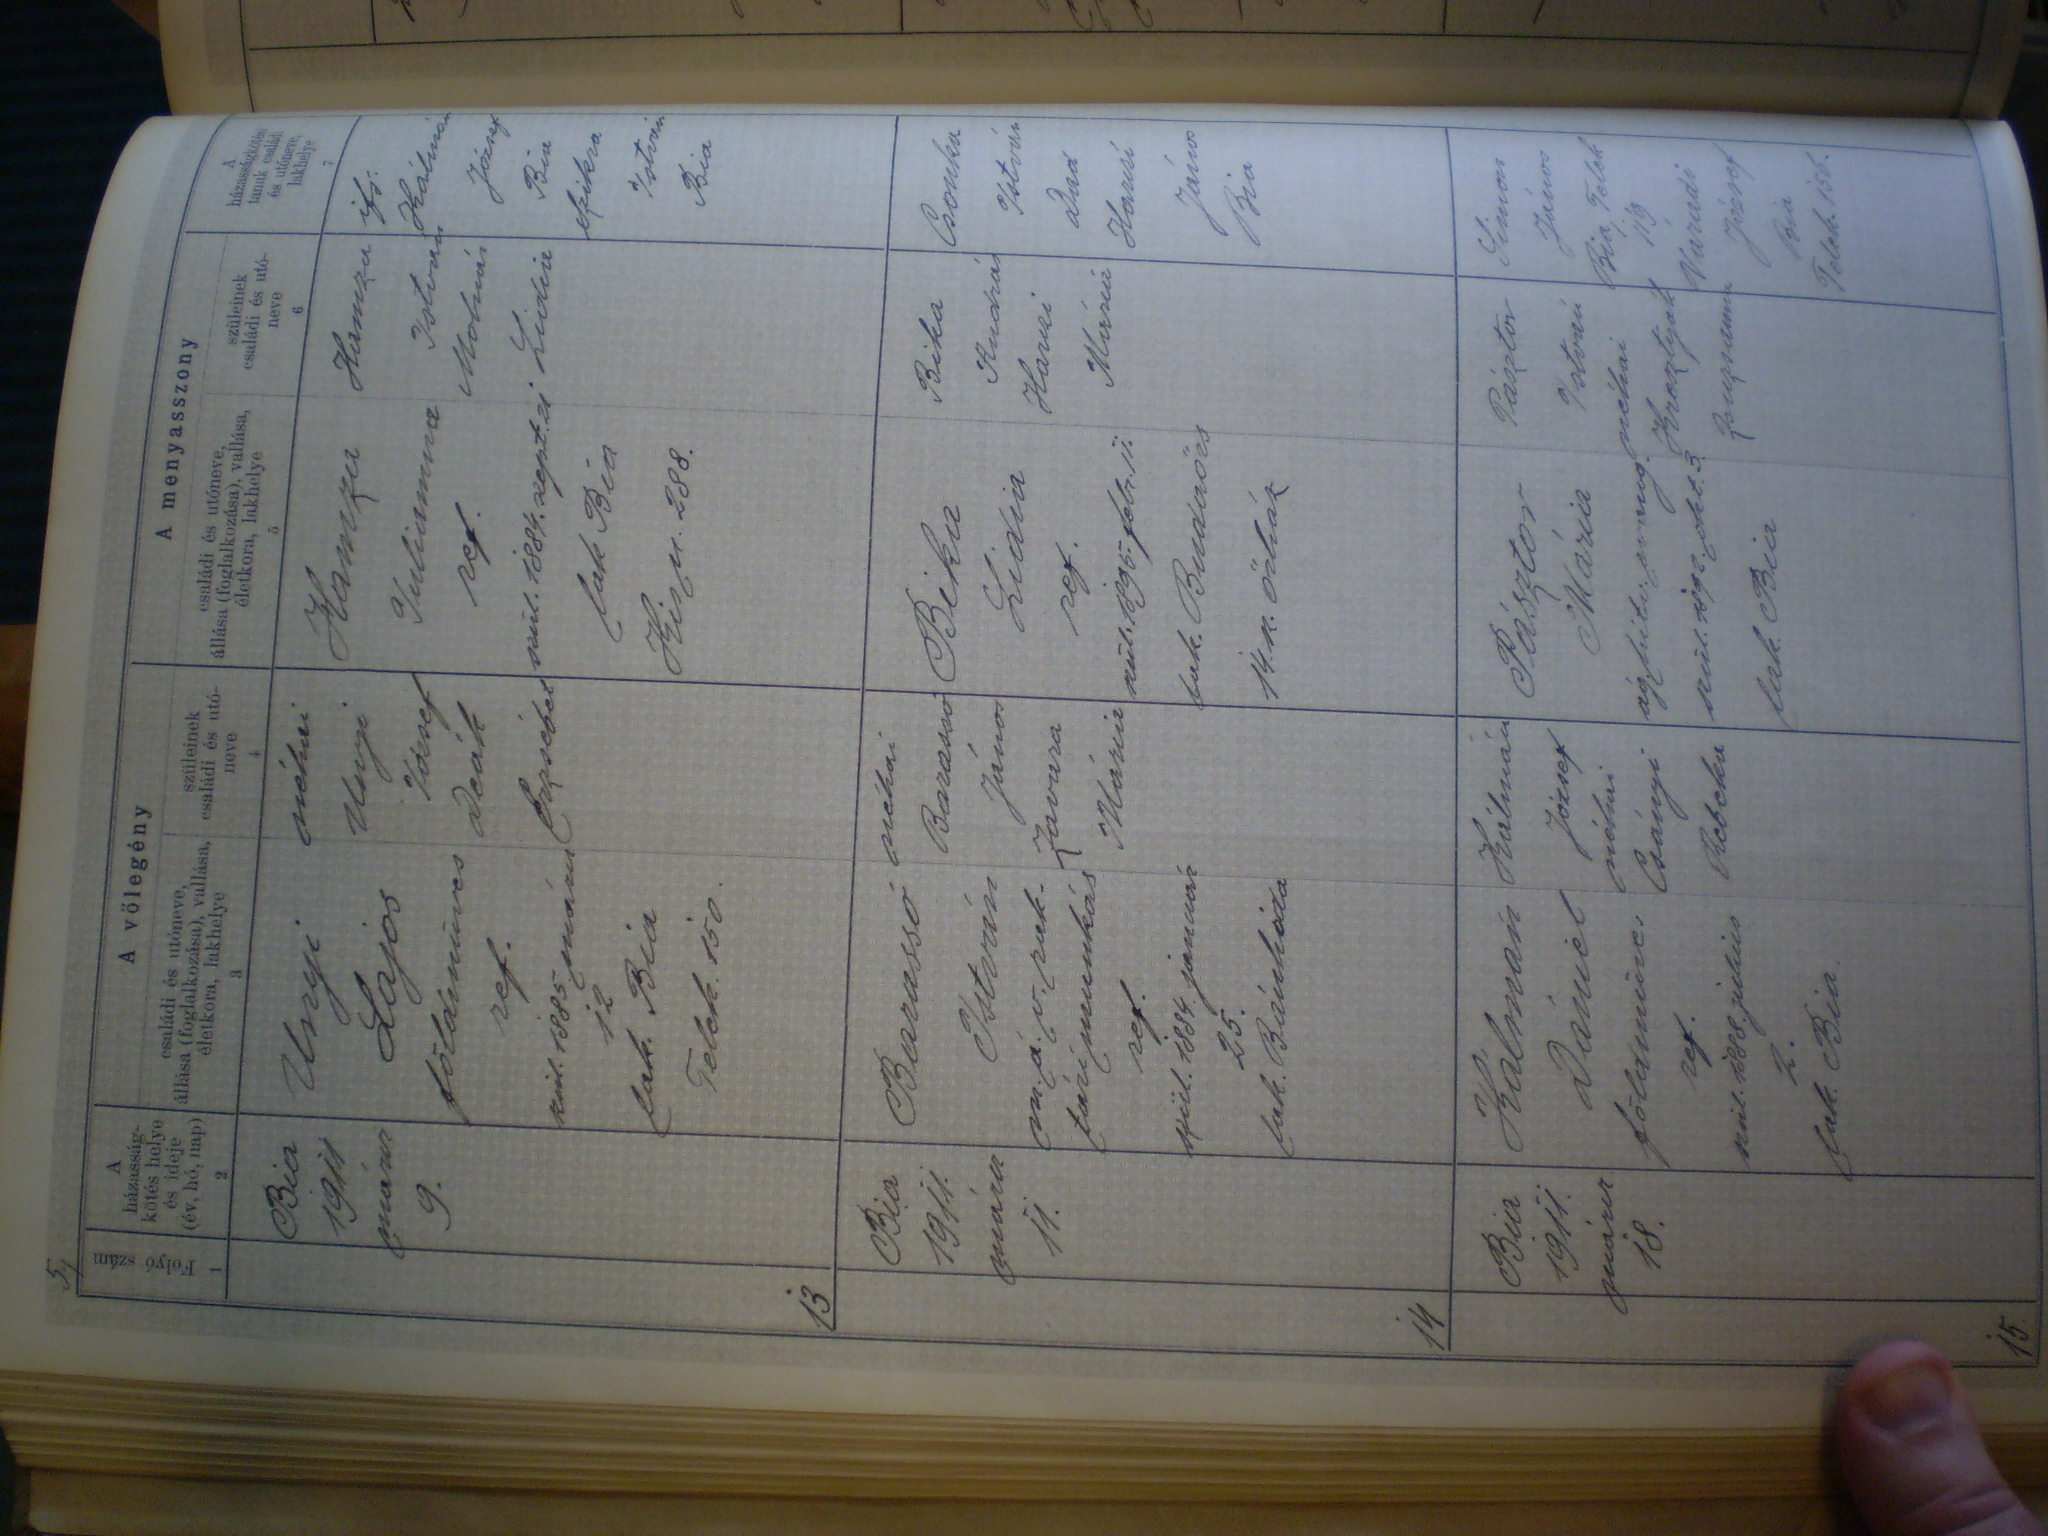 5,
Folyó szám
1
A
házasság-
kötés helye
és ideje
(év, hó, nap)
2
A vőlegény
családi és utóneve,
állása (foglalkozása), vallása,
életkora, lakhelye
3
szüleinek
családi és utó-
neve
4
A menyasszony
családi és utóneve,
állása (foglalkozása), vallása,
életkora, lakhelye
5
szüleinek
családi és utó-
neve
6
A
házasságkötés
tanuk családi
és utóneve,
lakhelye
7
13
Bia
1911
9.
Unyi
Lajos
földmives
ref.
szül. 1885
12
lak. Bia
Telek. 150.
néhai
Unyi
József
Deák
Erzsébet
Hamza
Julianna
ref.
szül. 1884. szept. 21
lak Bia
Kisu. 288.
Hamza
István
Molnár
Lidia
ifj.
Kálmán
József
Bia
István
Bia
14
Bia
1911.
11.
Barassó
István
m. á. v. rak-
tári munkás
ref.
szül. 1884. január
25.
lak. Bánhida
néhai
Barassó
János
Zavara
Mária
Bika
Lidia
ref.
szül. 1895 febr. 11.
lak. Budaörs
14. sz. őrház
Bika
András
Harsi
Mária
Csonka
István
Harsi
János
Bia
15.
Bia
1911.
18.
Kálmán
Dániel
földmives.
ref.
szül. 1888. julius
2.
lak. Bia.
Kálmán
József
néhai
Csányi
Rebeka
Pásztor
Mária
ág. hitv. evang.
szül. 1892. okt. 3.
lak. Bia
Pásztor
István
néhai
Zsuzsanna
Simon
János
Bia, Telek
119
Váradi
József
Bia
Telek. 156.